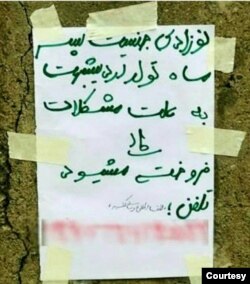 نوزادی جنسیت پسر
ماه تولد اردیبهشت
به علت مشکلات
مالی
فروخته میشود
تلفن :
Courtesy